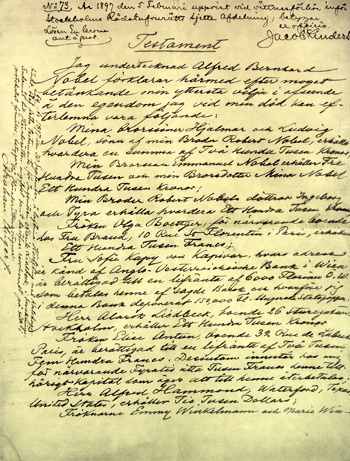 No 73. År 1897 den 5 Februari uppvist vid vittnesförhör inför
Stockholms Rådstufvurätt sjette Afdelning; betyga
Testament
Jag undertecknad Alfred Bernhard
Nobel förklarar härmed efter moget
betänkande min yttersta vilja i afseende
å den egendom jag vid min död kan ef-
terlemna vara följande:
Mina Brorsöner Hjalmar och Ludvig
Nobel, söner af min Broder Robert Nobel, erhålla
hvardera en summa af Två Hundra Tusen Kronor;
Min Brorson Emmanuel Nobel erhåller Tre
Hundra Tusen och min Brorsdotter Mina Nobel
Ett Hundra Tusen Kronor;
Min Broder Robert Nobels döttrar Ingeborg
och Tyra erhålla hvardera Ett Hundra Tusen
Fröken Olga Boettger, för närvarande boende
hos Fru Brand, 10 Rue St Florentin i Paris, erhåller
Ett Hundra Tusen Francs;
Fru Sofie Kapy von Kapivar, hvars adress
är känd af Anglo-Oesterreichische Bank i Wien
är berättigad till en lifränta af 6000 Florins Ö.W.
som betalas henne af sagde Bank och hvarför jag
i denna Bank deponerat 150,000 Fl. i Ungerska Statspapper;
Herr Alarik Liedbeck, boende 26 Sturegatan,
Stockholm, erhåller Ett Hundra Tusen Kronor;
Fröken Elise Antun, boende 32 Rue de Lubeck,
Paris, är berättigad till en lifränta af Två Tusen
Fem Hundra Francs. Desutom innestår hos mig
för närvarande Fyratio åtta Tusen Francs henne till-
hörigt kapital som äger att till henne återbetalas;
Herr Alfred Hammond, Waterford, Texas,
United States, erhåller Tio Tusen Dollars;
Fröknarne Emmy Winkelmann och Marie Win-